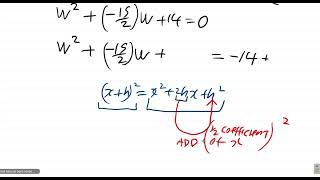 w² + (-15/2)w + 14 = 0
w² + (-15/2)w +       = -14 +
(x+h)² = x² + 2hx + h²
ADD (1/2 coefficient of x)²